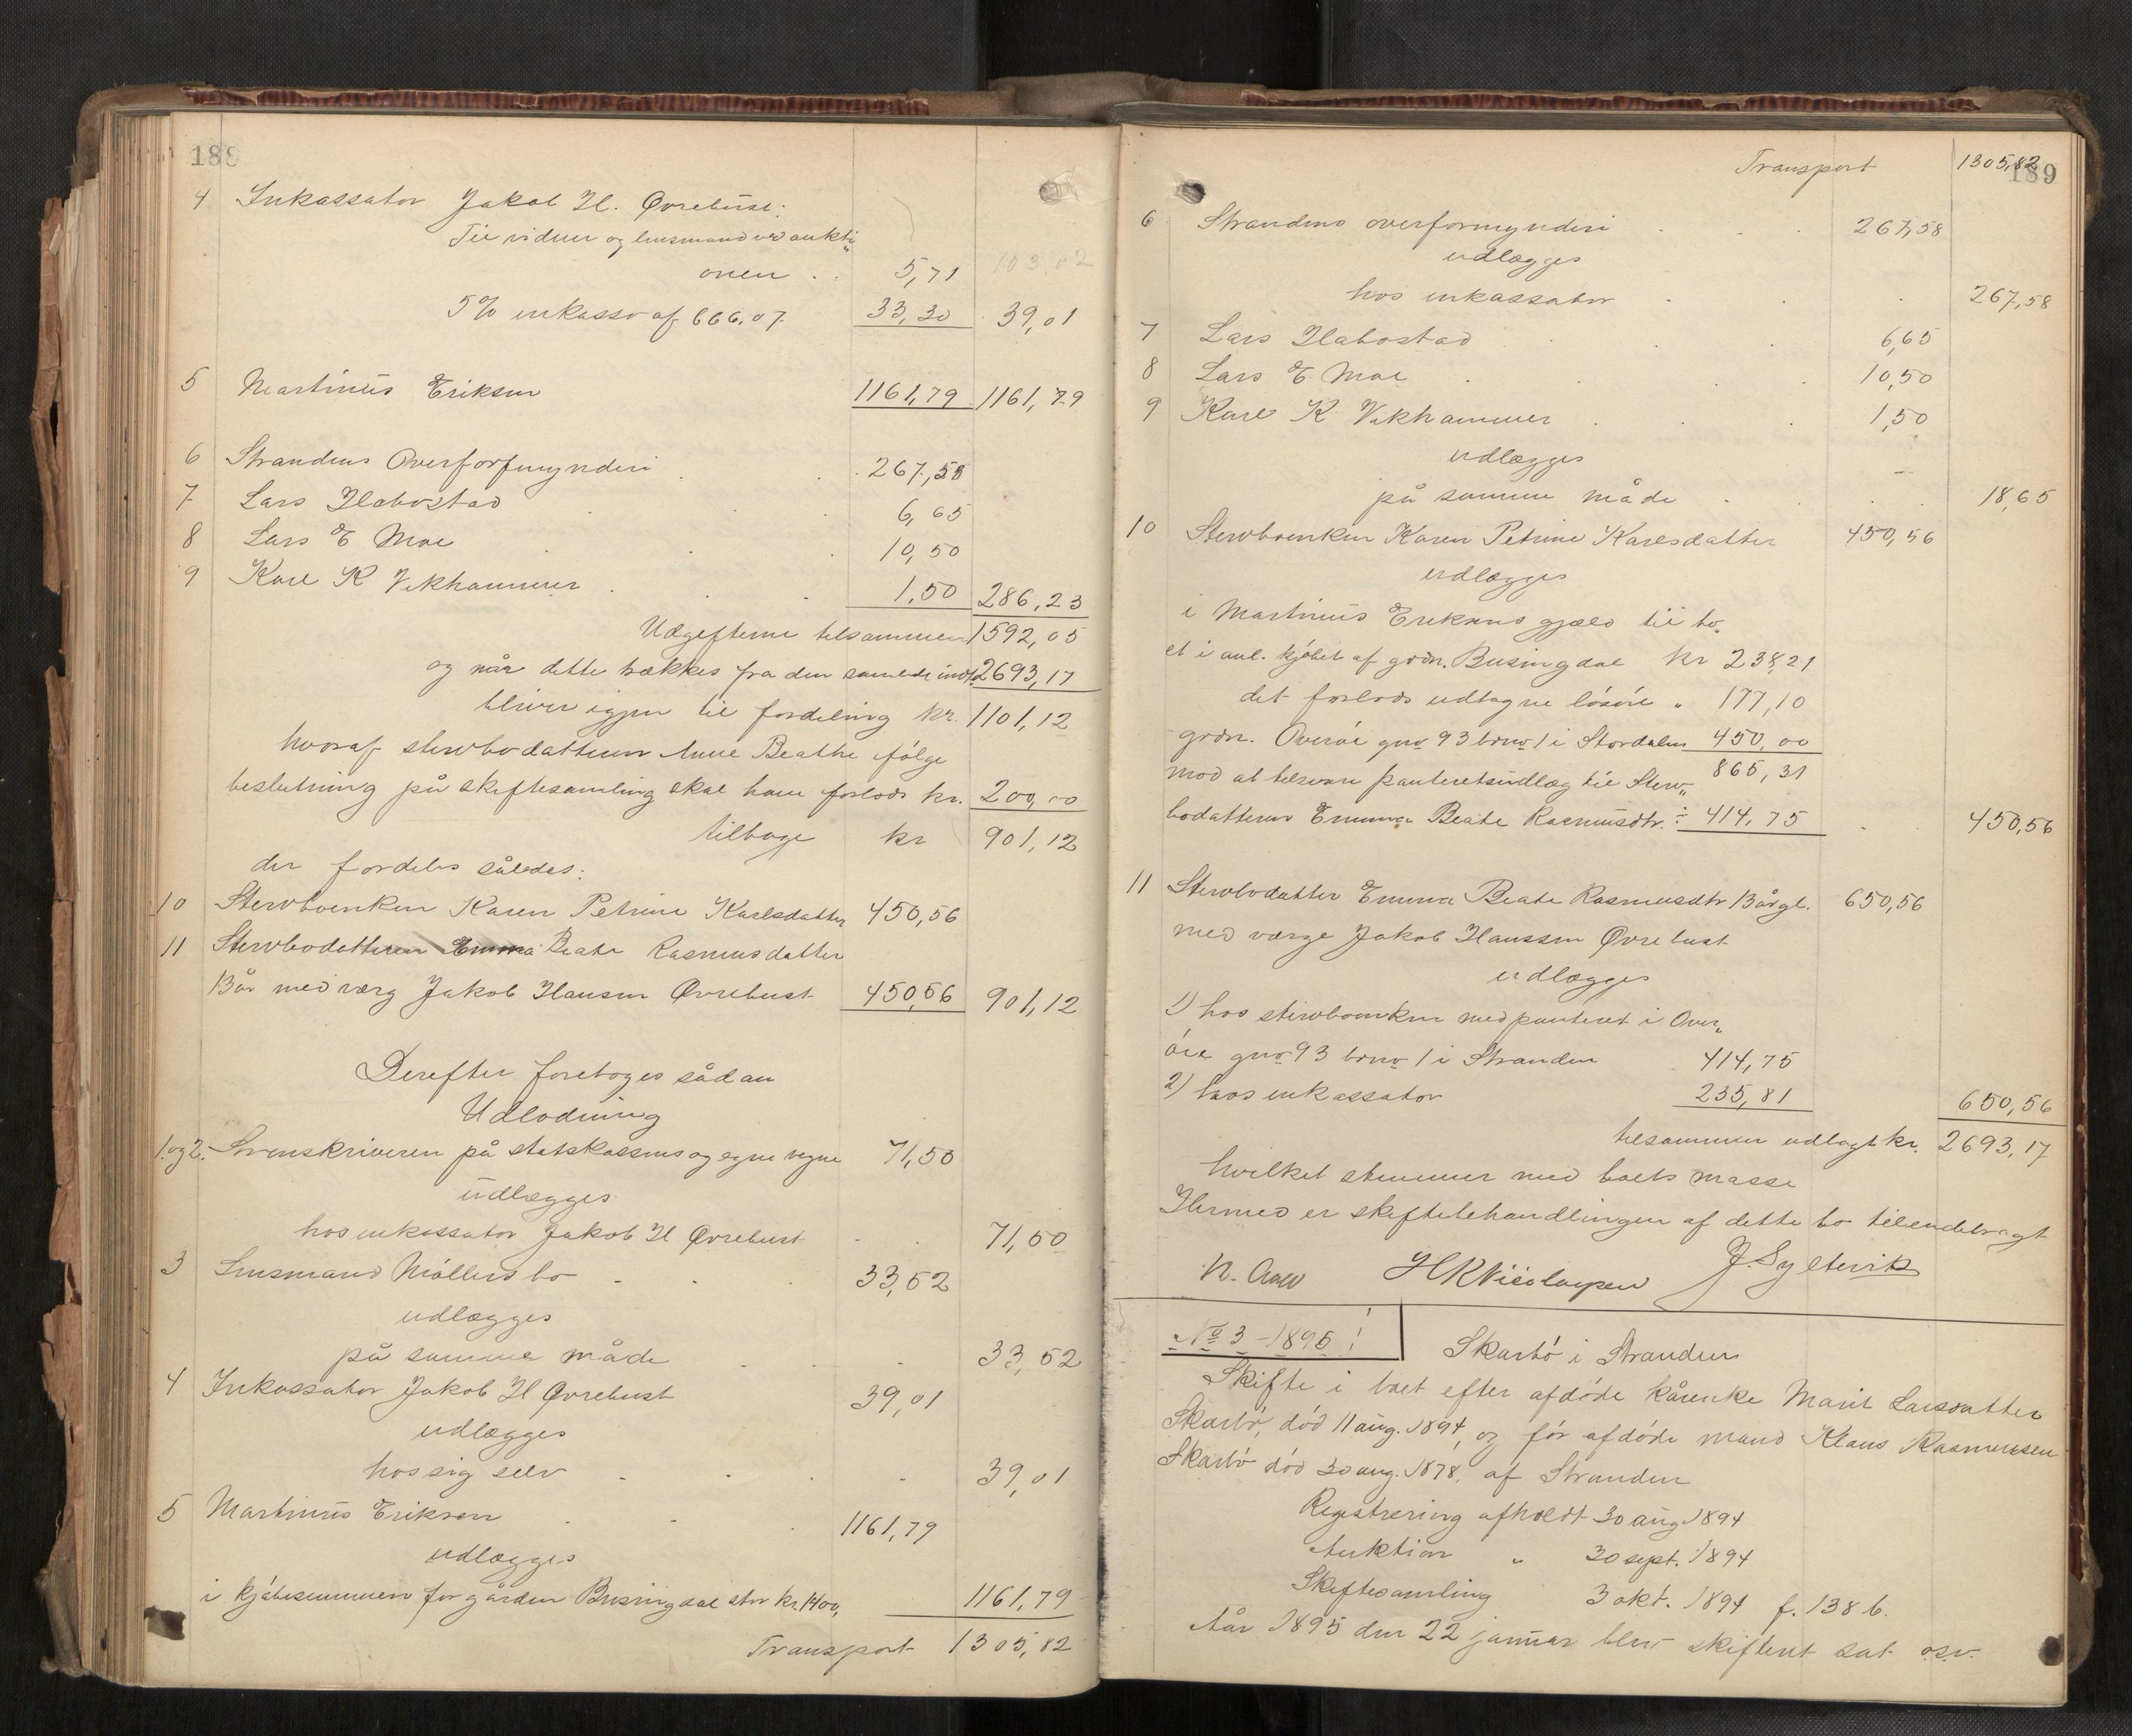 188
4 Inkassator Jakob H. Øvrebust:
Til vidner og lensmand ved aukti„
onen . . 5,71 103,02
5 % inkasso af 666,07 33,30 39,01
5 Martinus Eriksen 1161,79 1161,79
6 Strandens Overformynderi . . 267,58
7 Lars Habostad . . 6,65
8 Lars E Moe . . . 10,50
9 Karl K Vikhammer . . . 1,50 286,23
Udgifterne tilsammen 1592,05
og når dette trækkes fra den samlede indt. 2693,17
bliver igjen til fordeling kr. 1101,12
hvoraf stervbodatteren Anne Beathe ifølge
beslutning på skiftesamling skal have forlods kr. 200,00
tilbage kr 901,12
der fordeles således:
10 Stervboenken Karen Petrine Karlsdatter 450,56
11 Stervbodatteren Emma Beate Rasmusdatter
13 år med værg Jakob Hansen Øvrebust 450,56 901,12
Derefter foretoges sådan
Udlodning
1 og 2. Sorenskriveren på statskassens og egne vegne 71,50
udlægges
hos inkassator Jakob H Øvrebust . . 71,50
3 Lensmand Møllers bo . . . 33,52
udlægges
på samme måde . . 33,52
4 Inkassator Jakob H Øvrebust 39,01
udlægges
hos sig selv . . . 39,01
5 Martinus Eriksen . . . 1161,79
udlægges
i kjøbesummen for gården Busingdal stor kr. 1400, 1161,79
Transport 1305,82
Transport 1305,82
189
6 Strandens overformynderi . . . 267,58
udlægges
hos inkassator . . . 267,58
7 Lars Habostad . . . 6,65
8 Lars E. Moe . . . . 10,50
9 Karl K. Vikhammer . . . 1,50
udlægges
på samme måde . . . 18,65
10 Stervboenken Karen Petrine Karlsdatter 450,56
udlægges
i Martinus Eriksens gjæld til bo„
et i anl. kjøbet af grdn. Busingdal kr 238,21
det forlods udtagne løsøre „ 177,10
grdn. Overøie gno 93 brno 1 i Stordalen 450,00
865,31
mod at tilsvare panteretsudlæg til Sterv„
bodatteren Emma Beate Rasmusdtr. ÷ 414,75 . . 450,56
11 Stervbodatter Emma Beate Rasmusdtr 13 år gl. 650,56
med værge Jakob Hanssen Øvrebust
udlægges
1) hos stervboenken med panteret i Over„
øie gno 93 brno 1 i Stranden 414,75
2) hos inkassator 235,81 650,56
tilsammen udlagt kr. 2693,17
hvilket stemmer med boets masse
Hermed er skiftebehandlingen af dette bo tilendebragt
N. Aall HKNicolaysen J. Sylterik
No 3 - 1895!
Skarbø i Stranden
Skifte i boet efter afdøde kårenke Marit Larsdatter
Skarbø, død 11 aug. 1894, og før afdøde mand Klaus Rasmussen
Skarbø død 30 aug. 1878, af Stranden
Registrering afholdt 30 aug 1894
Auktion „ 30 sept. 1894
Skiftesamling 3 okt. 1894 f. 138 b.
Aår 1895 den 22 januar blev skifteret sat osv.